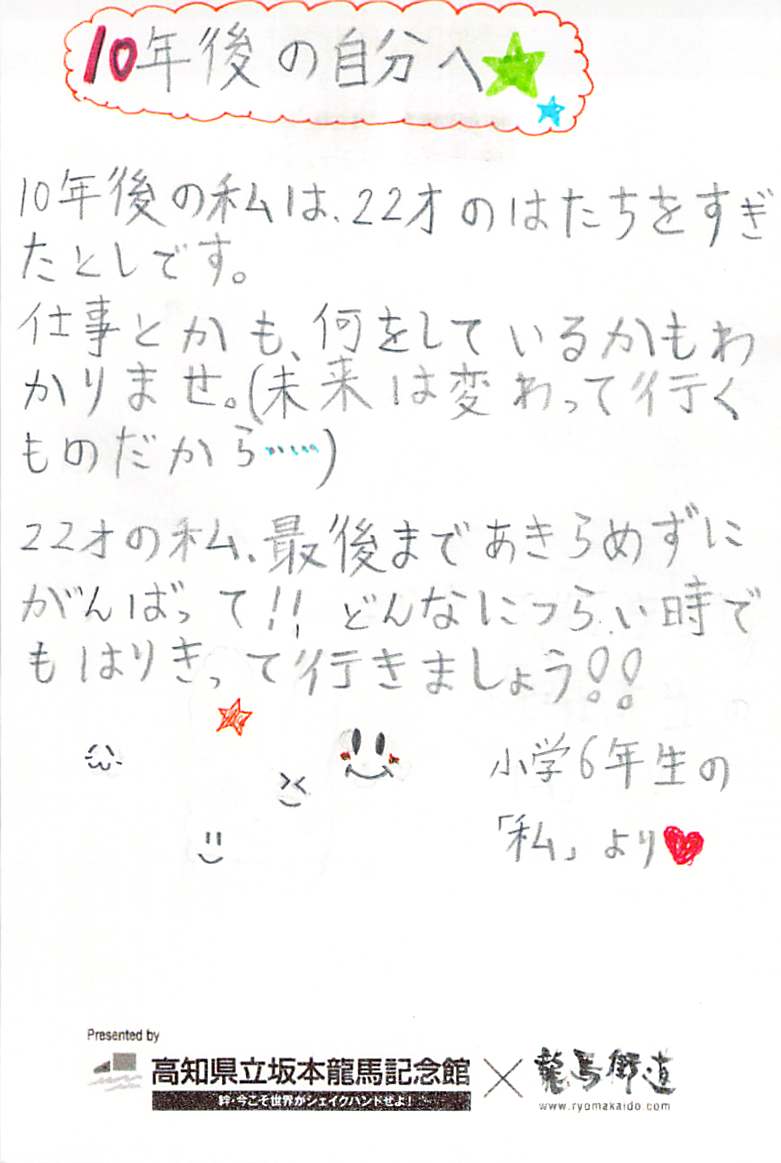 10年後の自分へ
10年後の私は、22才のはたちをすぎ
たとしです。
仕事とかも、何をしているかもわ
かりませ。(未来は変わって行く
ものだから……)
22才の私、最後まであきらめずに
がんばって!! どんなにつらい時で
もはりきって行きましょう!!
小学6年生の
「私」より
Presented by
高知県立坂本龍馬記念館×龍馬街道
絆・今こそ世界がシェイクハンドせよ!
www.ryomakaido.com